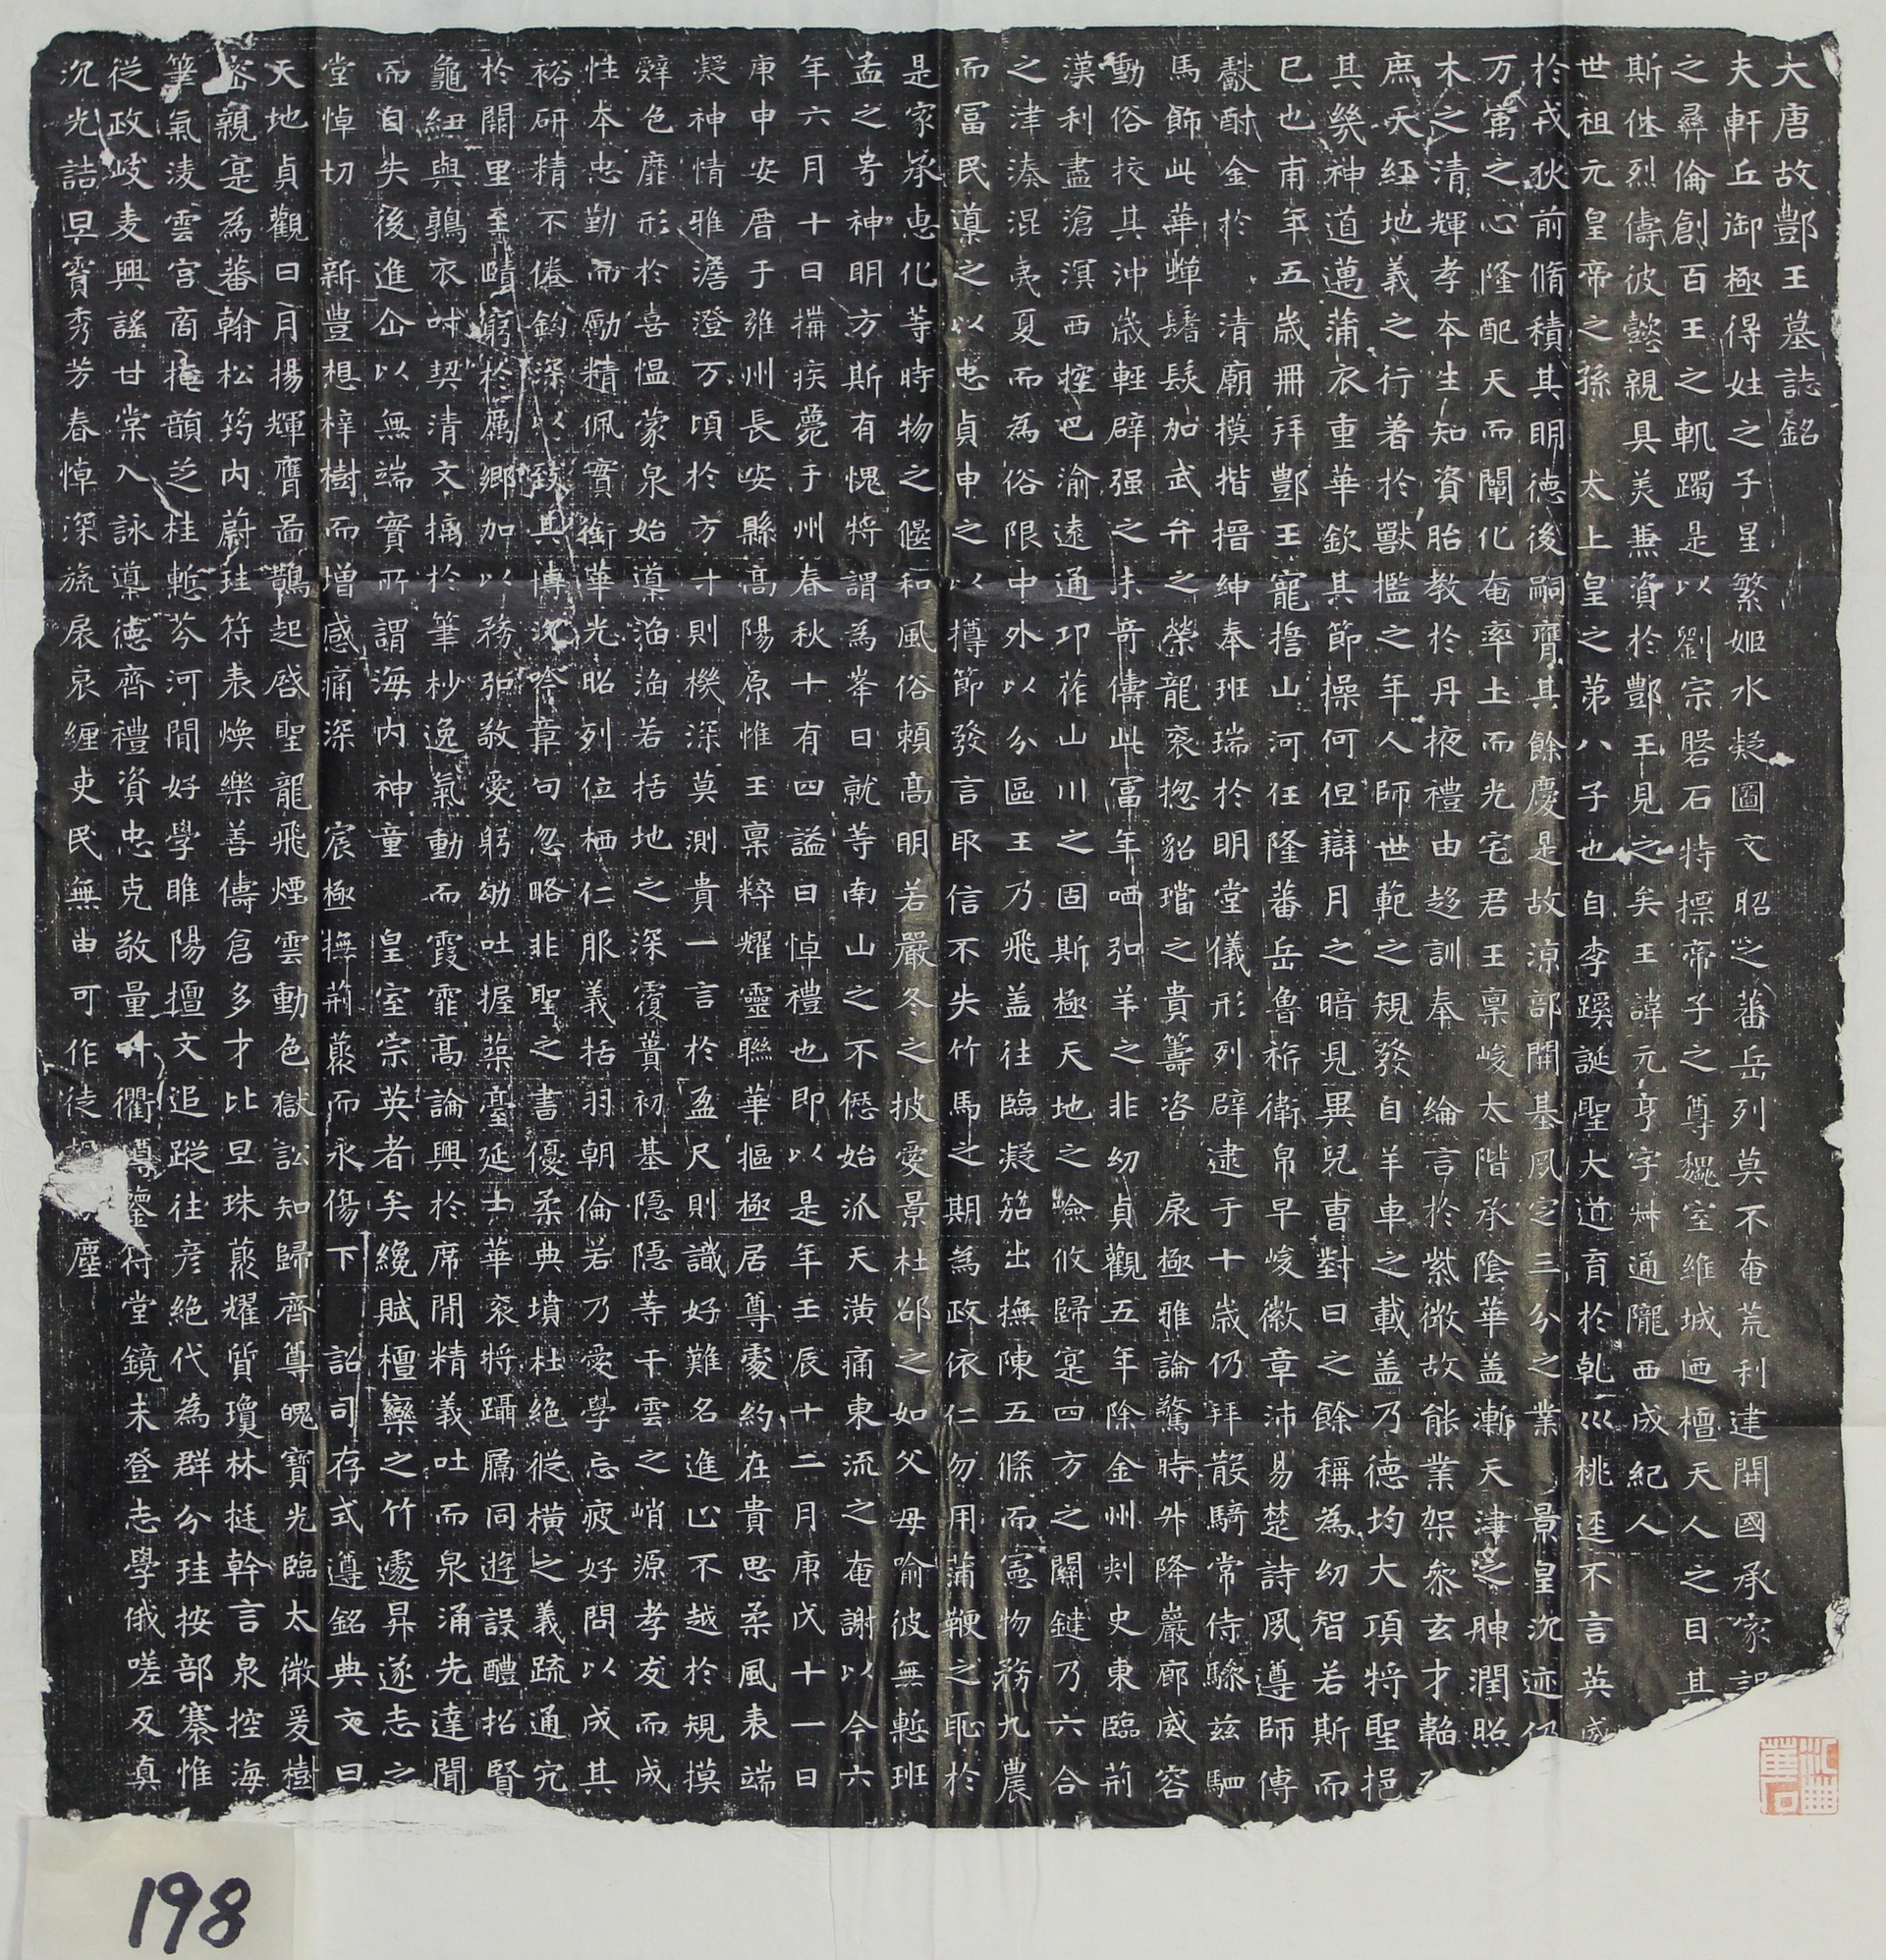 大唐故酆王墓誌銘
夫軒丘御極得姓之子星繁姬水凝圖文昭之蕃岳列莫不奄荒利建開國承家
之彝倫創百王之軌躅是以劉宗磐石特摽帝子之尊魏室維城迺檀天人之目其
斯休烈儔彼懿親具美兼資於酆王見之矣王諱元亨字尗通隴西成紀人
世祖元皇帝之孫太上皇之第八子也自李蹊誕聖大道育於乹巛桃逕不言英威
於戎狄前脩積其明德後嗣膺其餘慶是故涼部開基夙定三分之業景皇沉迹
万㝢之心隆配天而闡化奄率土而光宅君王稟峻太階承陰華盖漸天津之胂潤照
木之清輝孝本生知資胎教於丹掖禮由趍訓奉綸言於紫微故能業架叅玄才韜
庶天經地義之行著於獸檻之年人師世範之規發自羊車之載盖乃德均大項將聖挹
其幾神道邁蒲衣重華欽其節操何但辯月之暗見異兒曹對日之餘稱為幼智若斯而
巳也甫年五歲冊拜酆王寵擔山河任隆蕃岳魯祈衛帛早峻徽章沛易楚詩夙遵師傅
獻酎金於清廟模揩搢紳奉班瑞於明堂儀形列辟逮于十歲仍拜散騎常侍驂茲駟
馬飾此華蟬鬐髮加武弁之榮龍衮揔貂璫之貴籌咨扆極雅論驚時升降巖廊威容
動俗挍其沖歲輕辟强之未竒儔此冨年哂弘羊之非幼貞觀五年除金州刾史東臨荊
漢利盡滄溟西控巴渝遠通卭莋山川之固斯極天地之嶮攸歸寔四方之關鍵乃六合
之津湊混夷夏而為俗限中外以分區王乃飛盖往臨凝笳出撫陳五條而憲物務九農
而冨民導之以忠貞申之以撙節發言取信不失竹馬之期為政依仁勿用蒲鞭之恥於
是家承恵化等時物之偃和風俗頼髙明若嚴冬之披愛景杜邵之如父母喻彼無慙班
孟之号神明方斯有愧將謂為峯日就等南山之不僽始泒天潢痛東流之奄謝以今六
年六月十日搆疾薨于州春秋十有四謚曰悼禮也即以是年壬辰十二月庚戊十一日
庚申安厝于雍州長安縣髙陽原惟王稟粹耀靈聯華摳極居尊處約在貴思柔風表端
凝神情雅澹澄万頃於方寸則機深莫測貴一言於盈尺則識好難名進止不越於規摸
辤色靡形於喜愠蒙泉始導滔滔若括地之深覆蕢初基隱隱等干雲之峭源孝友而成
性本忠勤而勵精佩實銜華光昭列位栖仁服義括羽朝倫若乃愛學忘疲好問以成其
裕研精不倦鈎深以致其博沉吟章句忽略非聖之書優柔典墳杜絶從橫之義䟽通宄
於闇里至賾窮於厲鄉加以務弘敬愛躬劬吐握蘃臺延士華衮將躡屩同遊設醴招賢
龜紐與鶉衣同契清文摛於筆杪逸氣動而霞霏髙論興於席閒精義吐而泉涌先達聞
而自失後進仚以無端實所謂海内神童皇室宗英者矣纔賦檀欒之竹遽昇遂志之
堂悼切新豊想梓樹而增感痛深宸極撫荊蘂而永傷下詔司存式遵銘典文曰
天地貞觀日月揚輝膺啚鵲起啓聖龍飛煙雲動色獄訟知歸齊尊䰟寶光臨太微爰樹
宻親寔為蕃翰松筠内蔚珪符表煥樂善儔倉多才比旦珠蘂耀質瓊林挺幹言泉控海
筆氣淩雲宫商掩韻芝桂慙芬河閒好學睢陽擅文追蹤往彦絶代為群分珪按部褰惟
從政岐麦興謠甘棠入詠導德齊禮資忠克敬量斗衢罇鑒符堂鏡未登志學俄嗟反真
沉光詰早賓秀芳春悼深旒扆哀纏吏民無由可作徒想塵
198